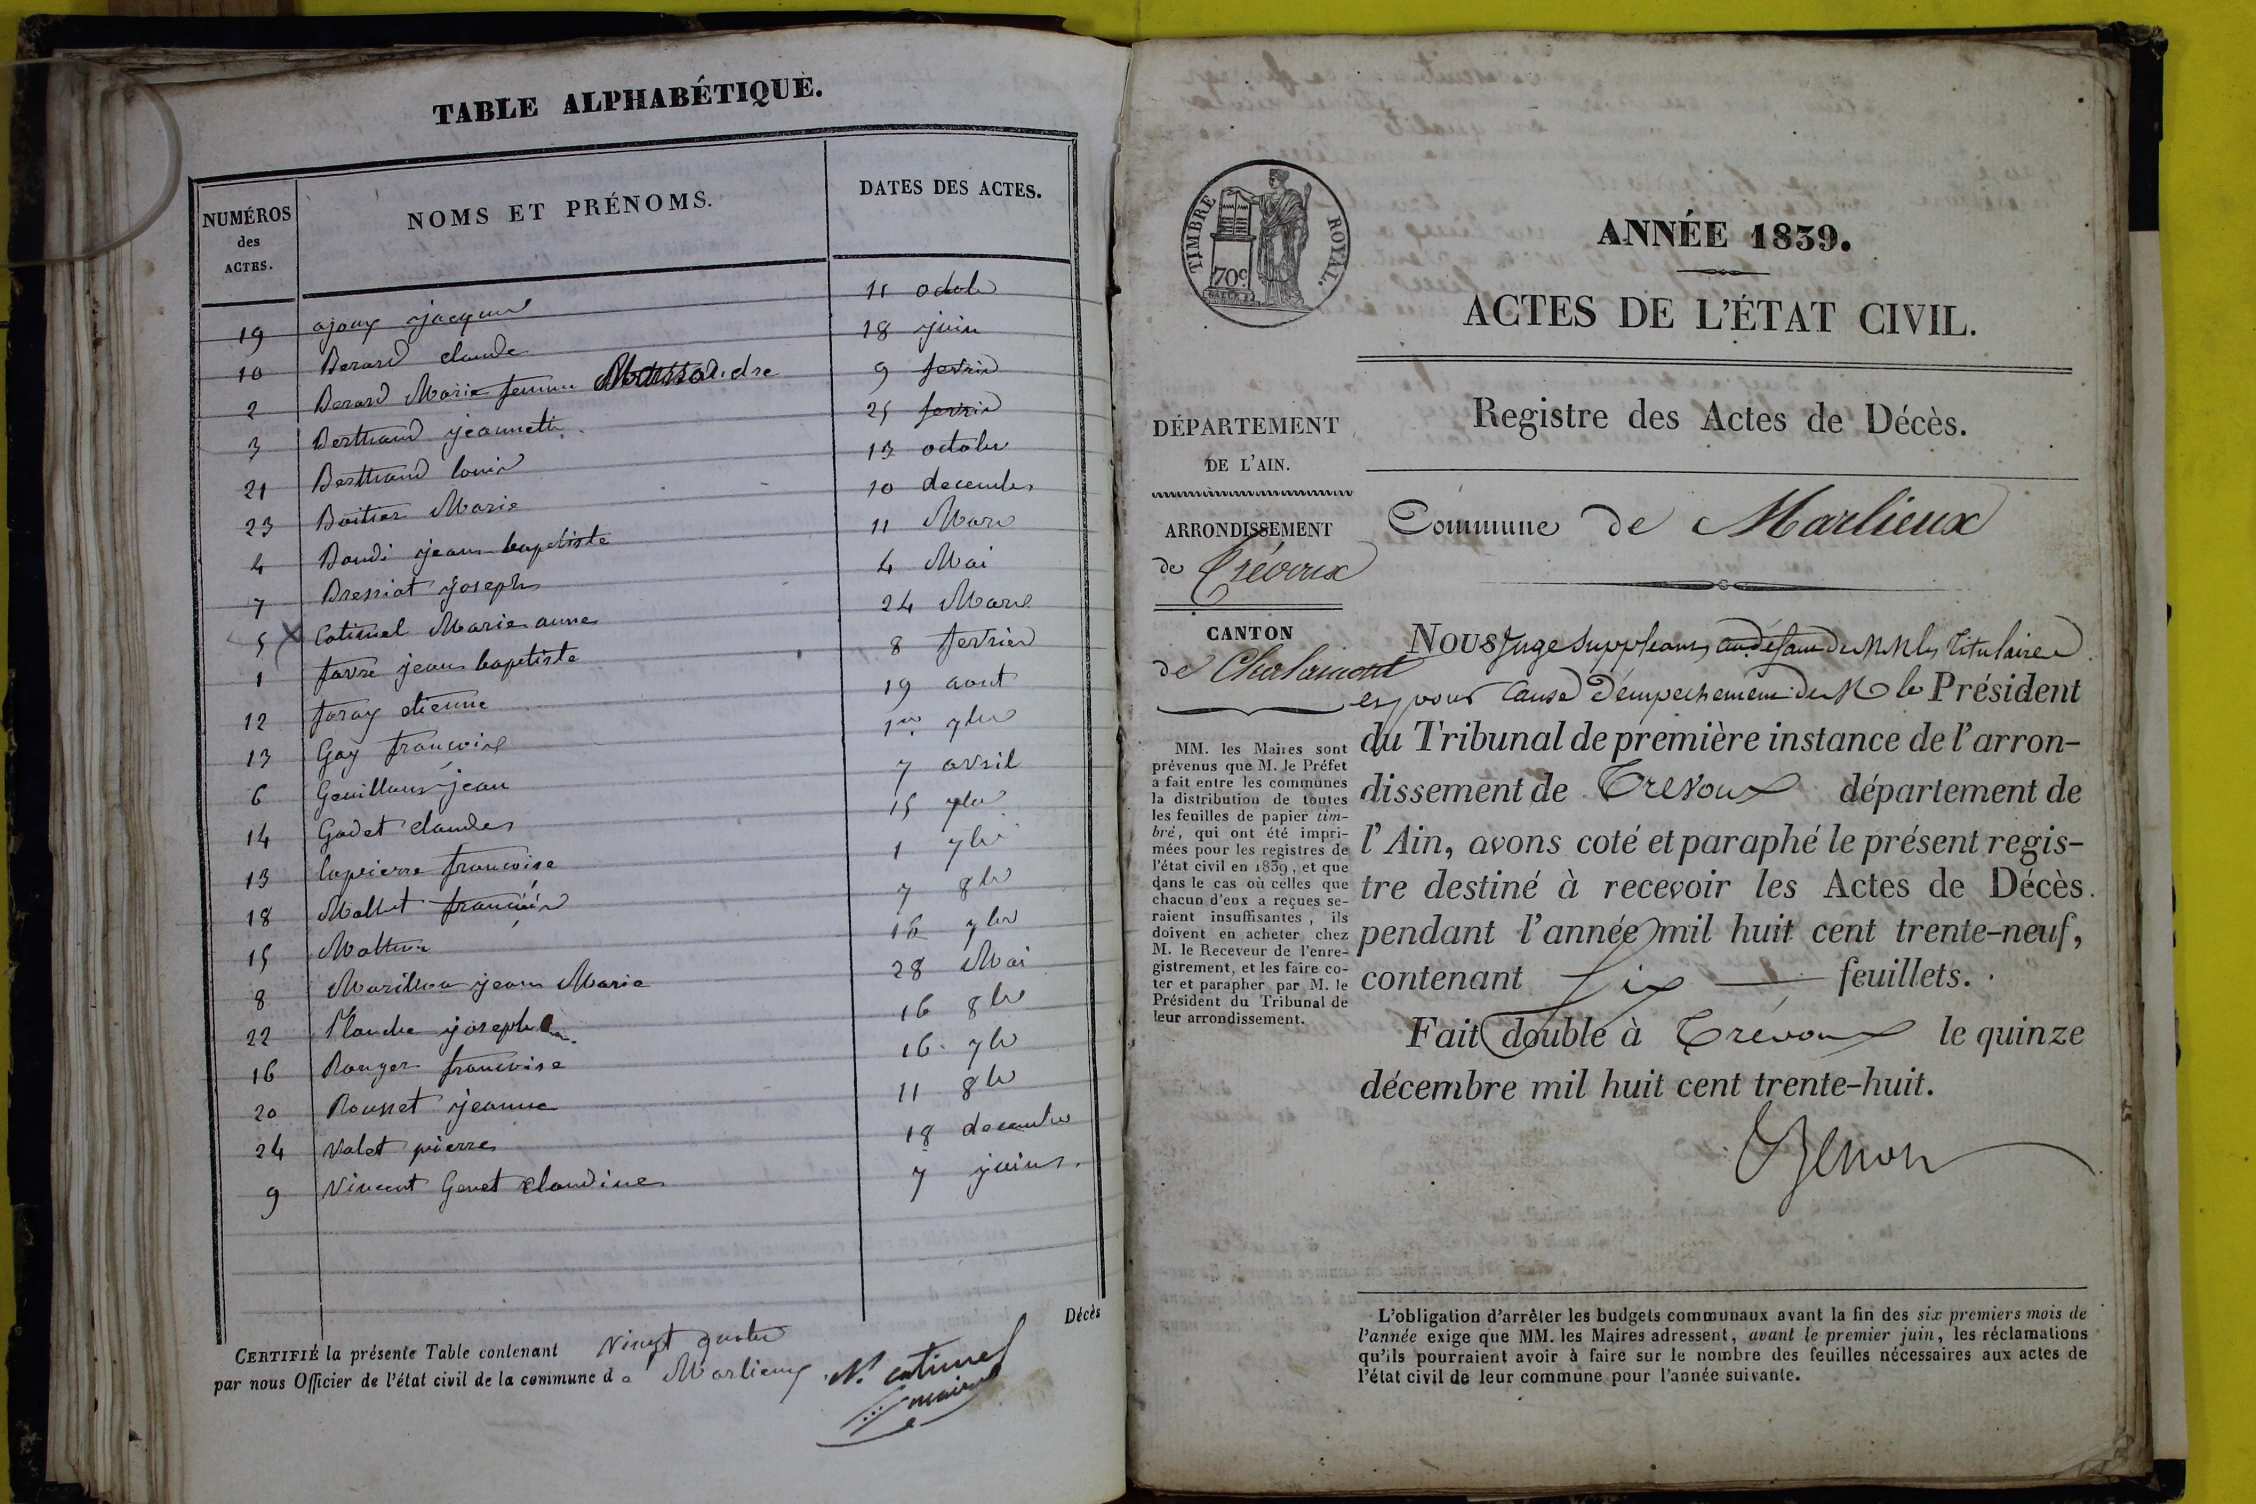 TABLE ALPHABÉTIQUE.
NUMÉROS des ACTES. NOMS ET PRÉNOMS. DATES DES ACTES.
19 ajoux jacques 11 octobr
10 Berard claude 18 juin
2 Berard Marie femme dre 9 fevrier
3 Berthaud jeannette 25 fevrier
21 Berthaud louis 13 octobre
23 Boitier Marie 10 decembre
4 Boudi jean baptiste 11 Mars
7 Bressiat joseph 4 Mai
5 Catinel Marie anne 24 Mars
1 favre jean baptiste 8 fevrier
12 foray etienne 19 aout
13 Gay francois 1er 7bre
6 Genilloux jean 7 avril
14 Godet claude 15 7bre
13 lapierre francoise 1 7bre
18 Mallet francois 7 8bre
15 Mathieu 16 7bre
8 Marilliea jean Marie 28 Mai
22 Planche joseph 16 8bre
16 Ronger francoise 16 7bre
20 Rousset jeanne 11 8bre
24 Valet pierre 18 decembre
9 Vincent Genet claudine 7 juin
Décès
CERTIFIÉ la présente Table contenant Vingt quatre
par nous Officier de l'état civil de la commune de Marlieux N. catinel
maire
TIMBRE ROYAL.
70c
ANNÉE 1839.
ACTES DE L'ÉTAT CIVIL.
Registre des Actes de Décès.
DÉPARTEMENT
DE L'AIN.
ARRONDISSEMENT
de Trévoux
CANTON
de Chalamont
MM. les Maires sont
prévenus que M. le Préfet
a fait entre les communes
la distribution de toutes
les feuilles de papier tim-
bré, qui ont été impri-
mées pour les registres de
l'état civil en 1839, et que
dans le cas où celles que
chacun d'eux a reçues se-
raient insuffisantes, ils
doivent en acheter chez
M. le Receveur de l'enre-
gistrement, et les faire co-
ter et parapher par M. le
Président du Tribunal de
leur arrondissement.
Commune de Marlieux
NOUS Juge Suppléant, au défaut de MM les Titulaires
et pour cause d'empechement de M le Président
du Tribunal de première instance de l'arron-
dissement de Trevoux département de
l'Ain, avons coté et paraphé le présent regis-
tre destiné à recevoir les Actes de Décès
pendant l'année mil huit cent trente-neuf,
contenant Six feuillets.
Fait double à Trévoux le quinze
décembre mil huit cent trente-huit.
L'obligation d'arrêter les budgets communaux avant la fin des six premiers mois de
l'année exige que MM. les Maires adressent, avant le premier juin, les réclamations
qu'ils pourraient avoir à faire sur le nombre des feuilles nécessaires aux actes de
l'état civil de leur commune pour l'année suivante.